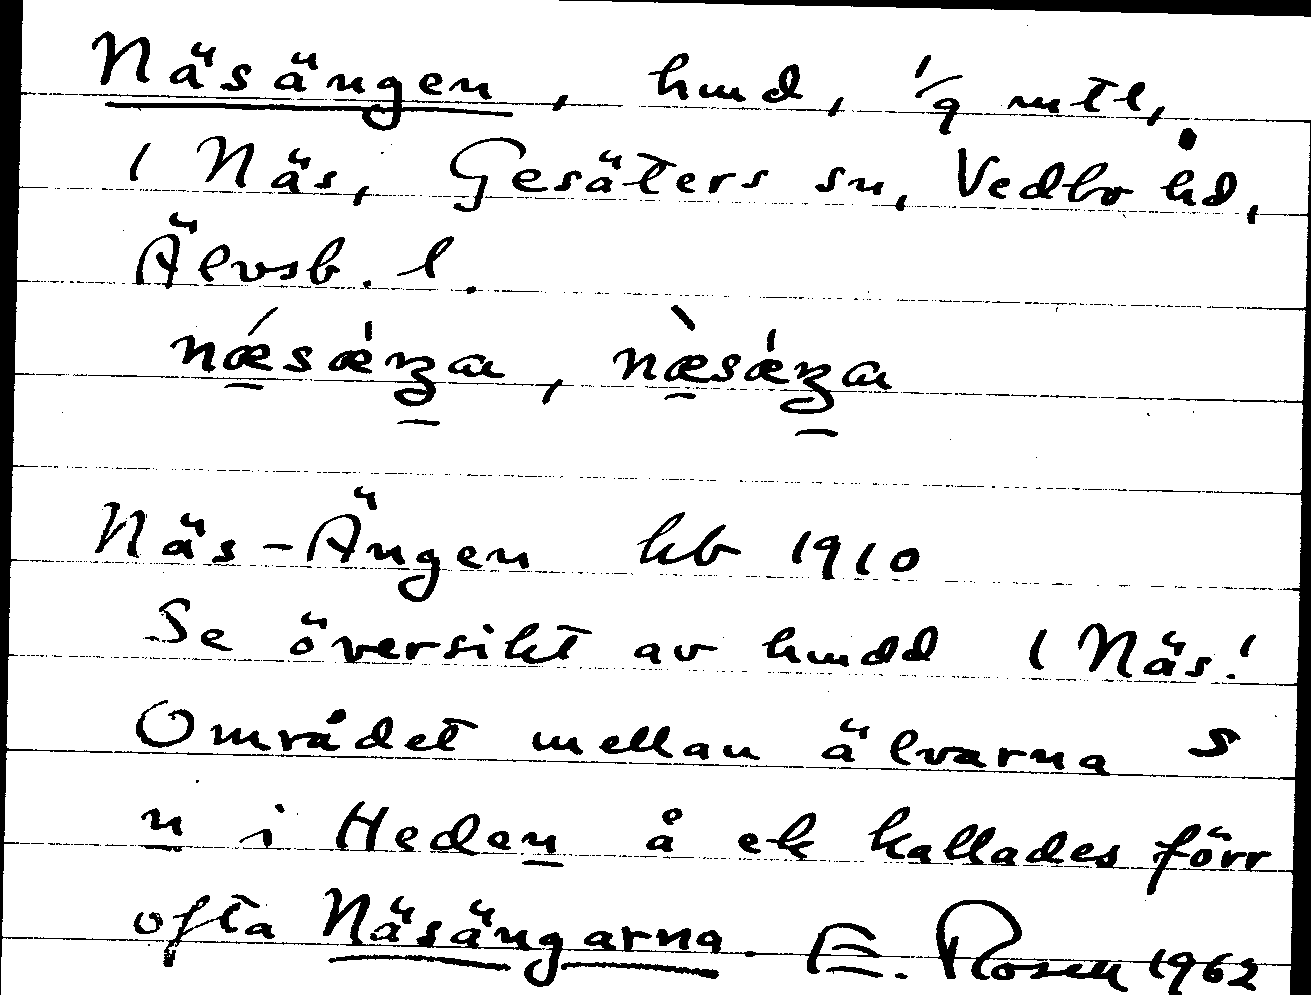 Näsängen, hmd, 1/9 mtl,
1 Näs, Gesäters sn, Vedbo hd,
Älvsb. l.
Näs-Ängen kb 1910
Se översikt av hmdd 1 Näs!
Området mellan älvarna S
n i Heden å ek kallades förr
ofta Näsängarna. E. Rosen 1962